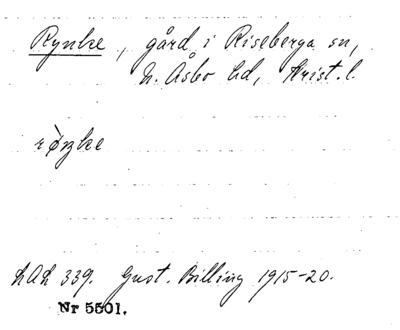 Rynke, gård i Riseberga sn,
N. Åsbo hd, Krist. l.
rø̀ŋke
LAL 339. Gust. Billing 1915-20.
Nr 5501.